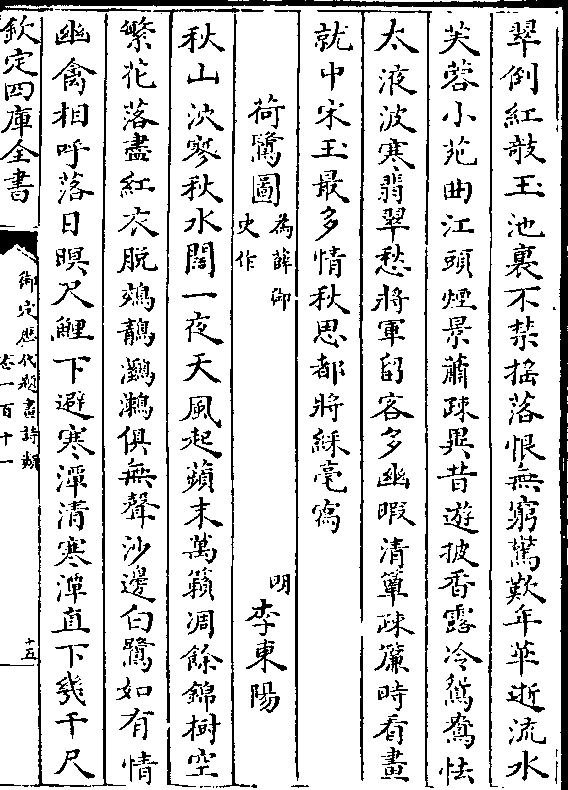 翠倒紅敧玉池裏不禁搖落恨無窮驚歎年華逝流水
芙蓉小苑曲江頭煙景蕭疎異昔遊披香露冷鴛鴦怯
太液波寒翡翠愁將軍留客多幽暇清簟疎簾時看畫
就中宋玉最多情秋思都將綵毫寫
荷鷺圖 為薛御史作
明 李東陽
秋山泬寥秋水闊一夜天風起蘋末萬籟凋餘錦樹空
繁花落盡紅衣脱鵁鶄鸂鶒俱無聲沙邊白鷺如有情
幽禽相呼落日暝尺鯉下避寒潭清寒潭直下幾千尺
欽定四庫全書
御定歷代題畫詩類
卷一百十一
十五